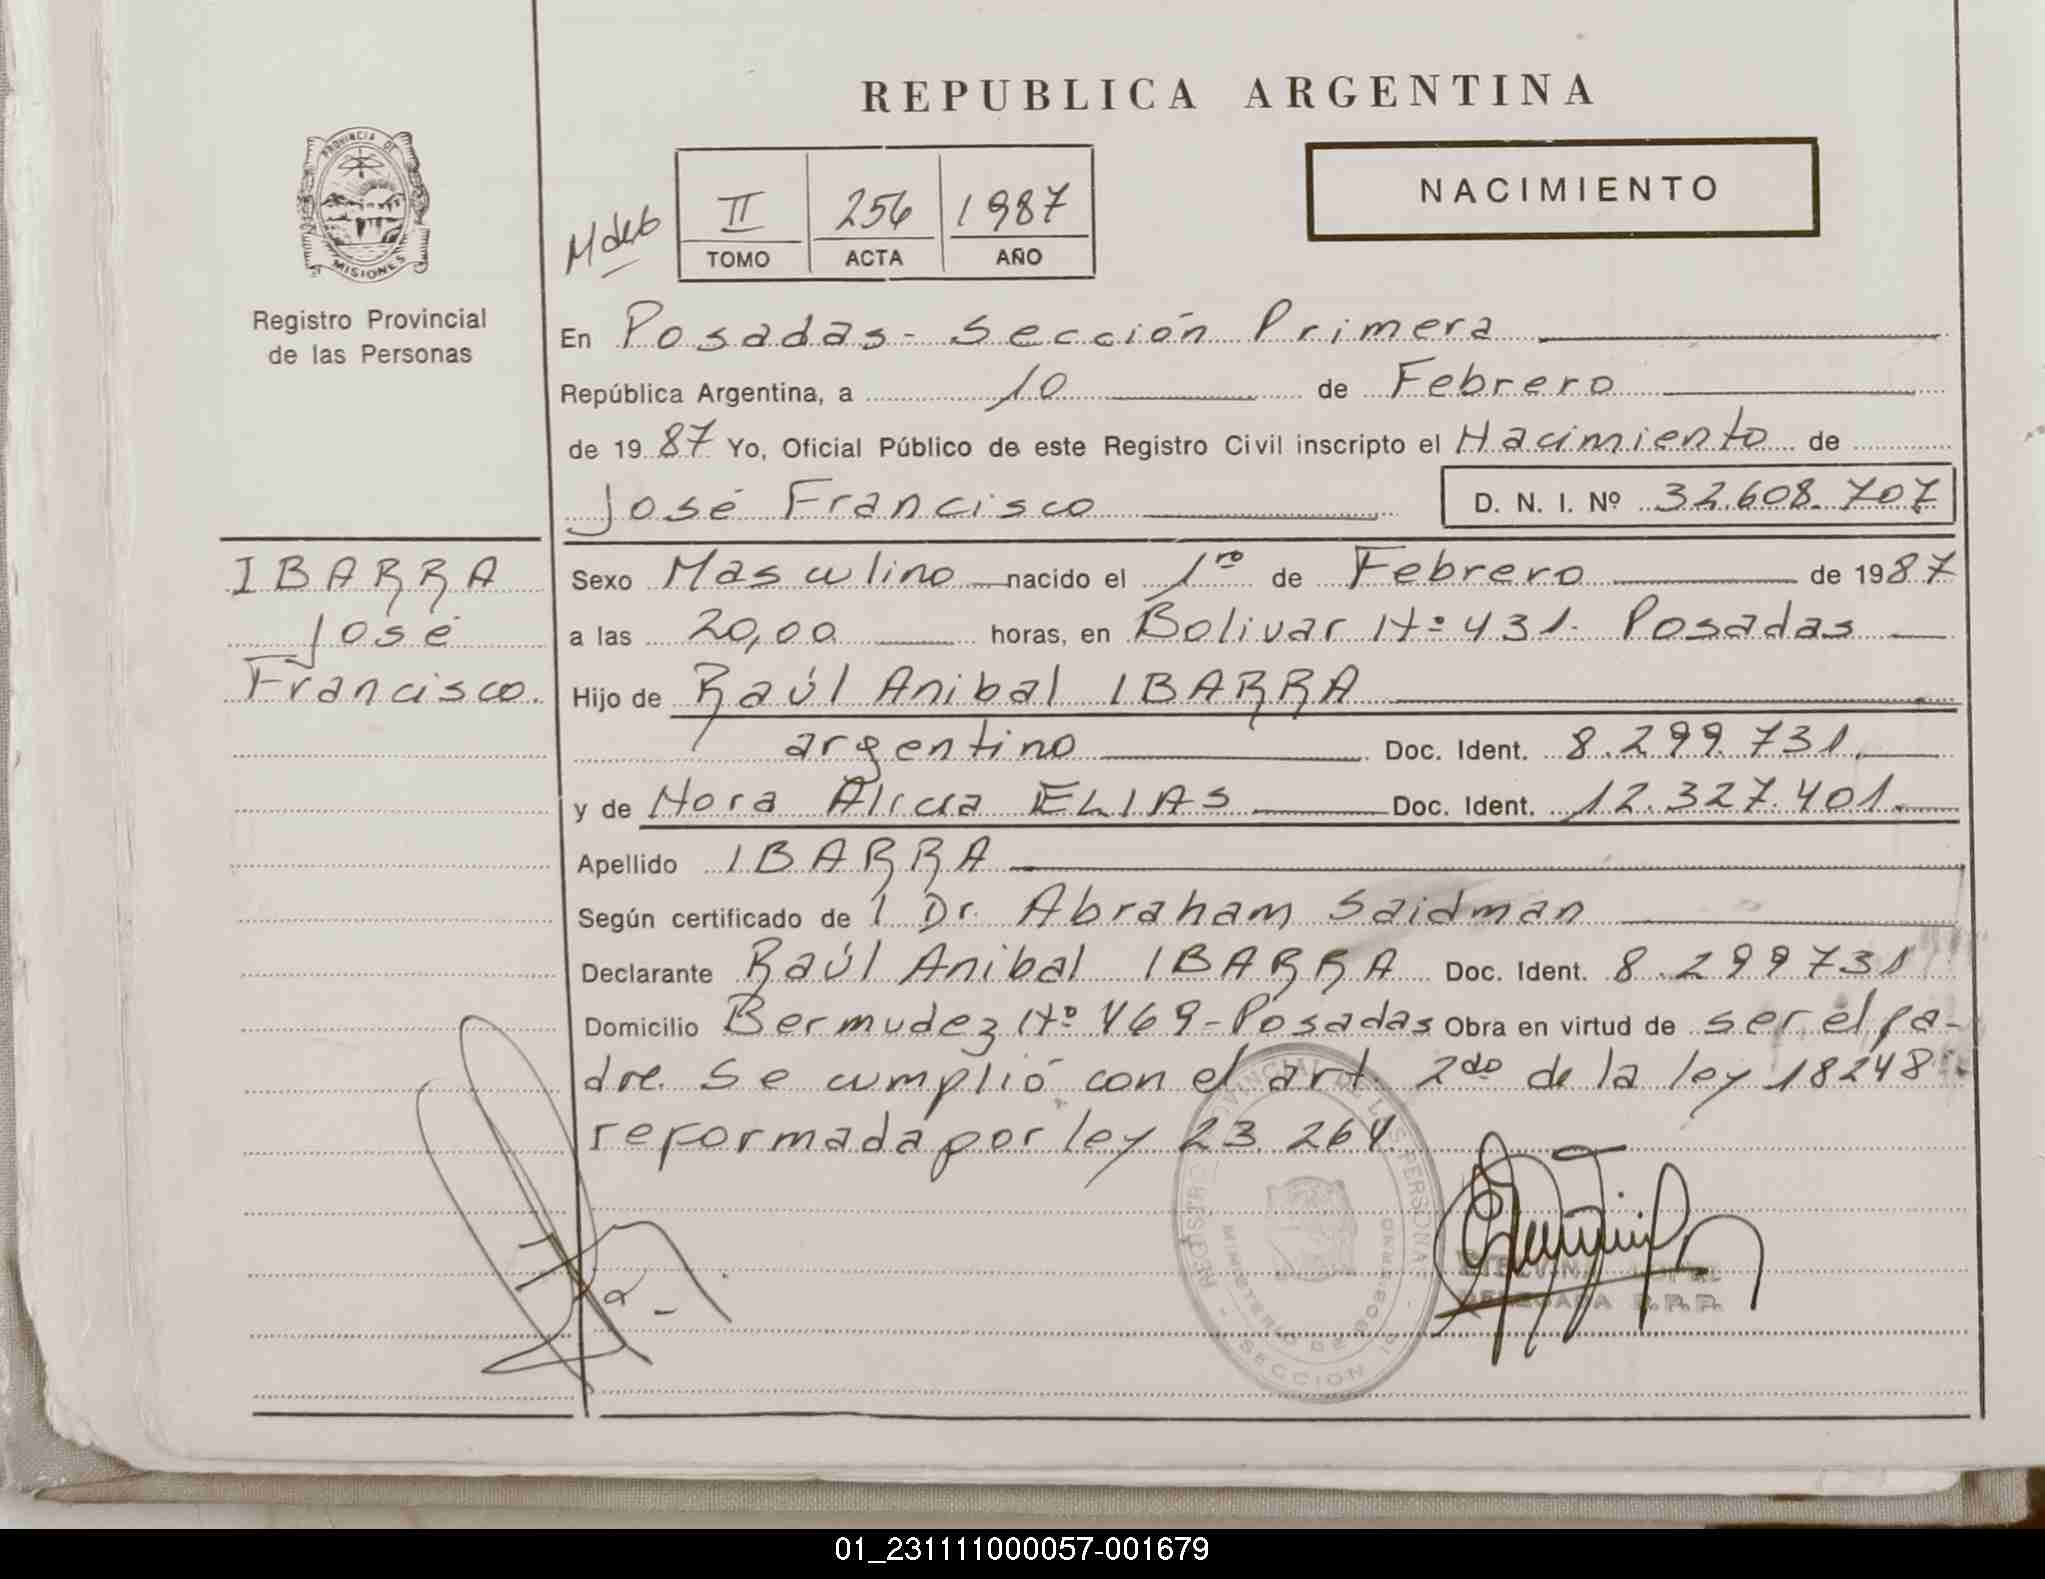 REPUBLICA ARGENTINA
PROVINCIA DE
MISIONES
Registro Provincial
de las Personas
II 256 1987
TOMO ACTA AÑO
NACIMIENTO
En Posadas - Sección Primera
República Argentina, a 10 de Febrero
de 1987 Yo, Oficial Público de este Registro Civil inscripto el Nacimiento de
José Francisco D. N. I. Nº 32.608.707
IBARRA
José
Francisco.
Sexo Masculino nacido el 1ro de Febrero de 1987
a las 20,00 horas, en Bolivar Nº 431. Posadas
Hijo de Raúl Anibal IBARRA
argentino Doc. Ident. 8.299.731.
y de Nora Alicia ELIAS Doc. Ident. 12.327.401.
Apellido IBARRA
Según certificado de l Dr. Abraham Saidman
Declarante Raúl Anibal IBARRA Doc. Ident. 8.299731
Domicilio Bermudez Nº 469 - Posadas Obra en virtud de ser el pa-
dre. Se cumplió con el art. 2do de la ley 18248
reformada por ley 23.264.
REGISTRO PROVINCIAL DE LAS PERSONAS
MINISTERIO DE GOBIERNO
SECCION 1a
DELEGADA R.P.P.
01_231111000057-001679